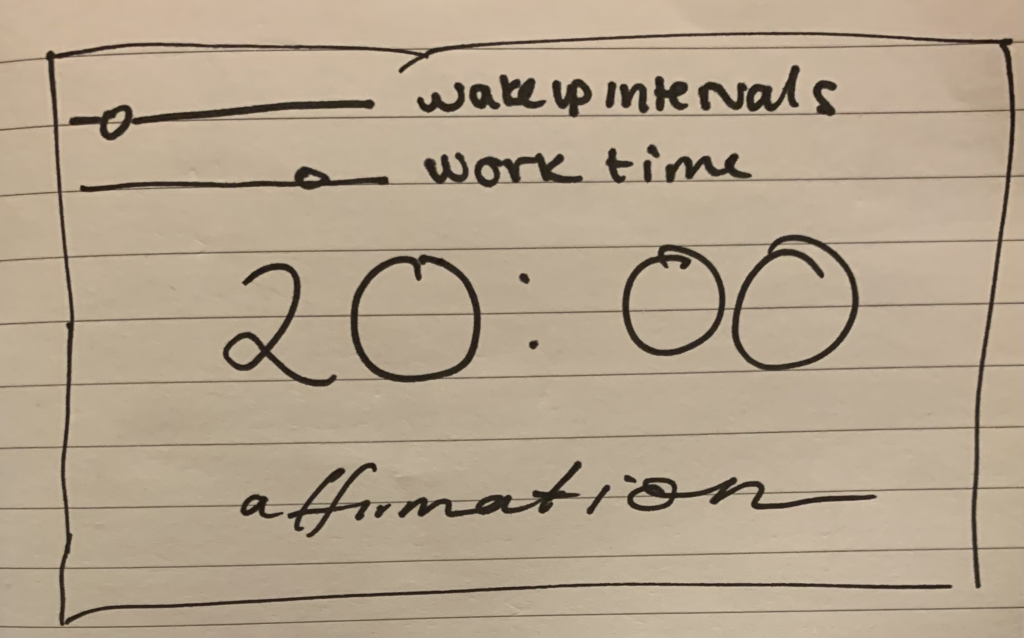 wakeup intervals
work time
20:00
affirmation